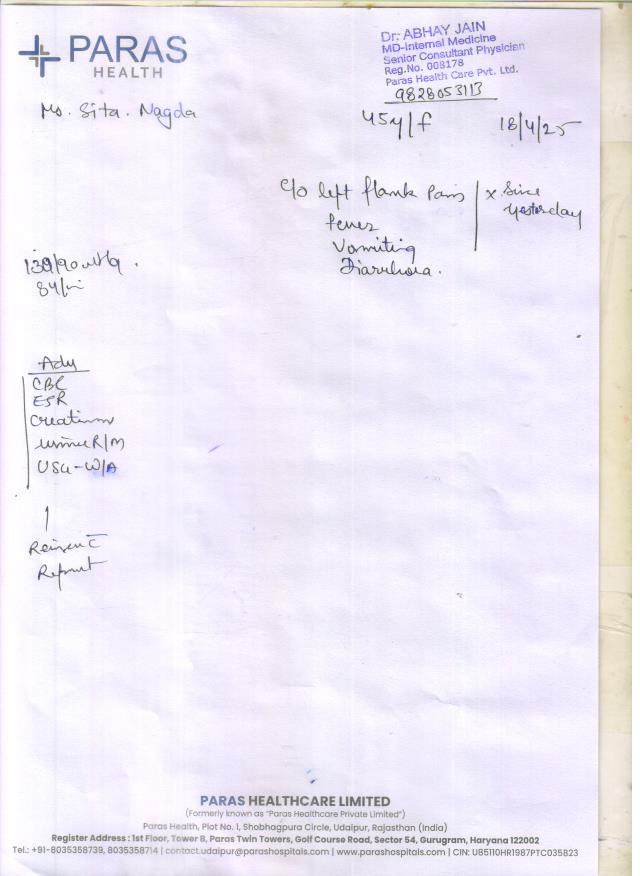 PARAS
HEALTH
Dr. ABHAY JAIN
MD-Internal Medicine
Senior Consultant Physician
Reg.No. 008178
Paras Health Care Pvt. Ltd.
9828053113
Ms. Sita. Nagda
45y/f
18/4/25
c/o left flank Pain
x Since
yesterday
fever
Vomiting
Diarrhoea.
84/
Adv
CBC
ESR
Creatinine
urine R/M
USG-W/A
Report
PARAS HEALTHCARE LIMITED
(Formerly known as "Paras Healthcare Private Limited")
Paras Health, Plot No. 1, Shobhagpura Circle, Udaipur, Rajasthan (India)
Register Address : 1st Floor, Tower B, Paras Twin Towers, Golf Course Road, Sector 54, Gurugram, Haryana 122002
Tel.: +91-8035358739, 8035358714 | contact.udaipur@parashospitals.com | www.parashospitals.com | CIN: U85110HR1987PTC035823